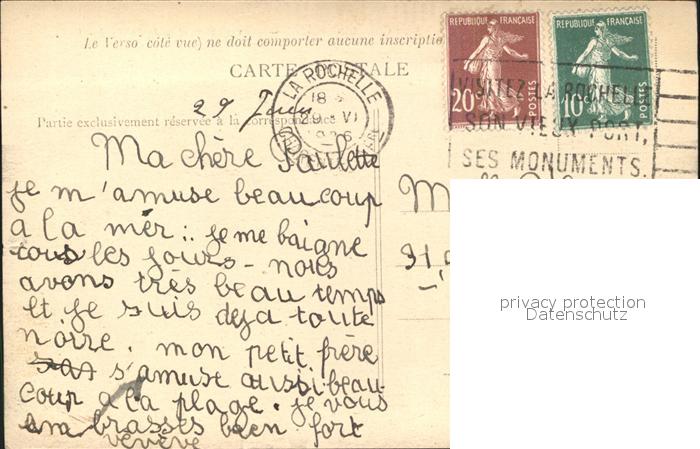 Le Verso côté vue) ne doit comporter aucune inscriptio
CARTE POSTALE
REPUBLIQUE FRANÇAISE
20c
POSTES
REPUBLIQUE FRANÇAISE
10c
POSTES
LA ROCHELLE
18
29 VI
1926
VISITEZ LA ROCHELL
SON VIEUX PORT,
SES MONUMENTS,
29 Juin
Partie exclusivement réservée à la correspondance
Ma chère Paulette
je m'amuse beaucoup
a la mer: je me baigne
tous les jours - nous
avons très beau temps
et je suis deja toute
noire. mon petit frère
s'amuse aussi beau-
coup a la plage. je vous
embrasses bien fort
vévéve
M
31,
privacy protection
Datenschutz